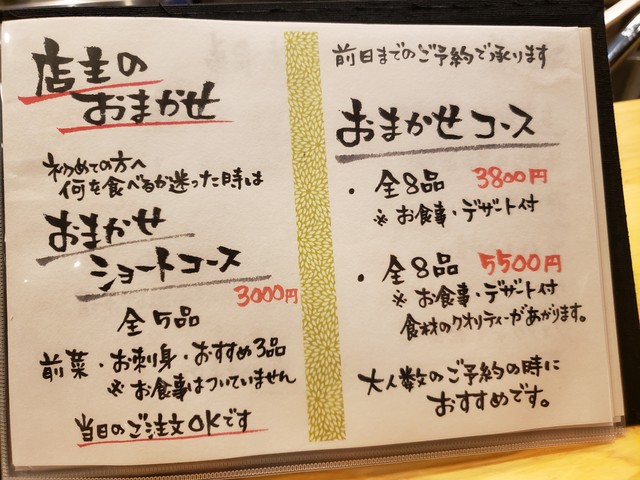 店主の
おまかせ
初めての方へ
何を食べるか迷った時は
おまかせ
ショートコース
3000円
全5品
前菜・お刺身・おすすめ3品
※お食事はついていません
当日のご注文OKです
前日までのご予約で承ります
おまかせコース
・全8品 3800円
※お食事・デザート付
・全8品 5500円
※お食事・デザート付
食材のクオリティーがあがります。
大人数のご予約の時に
おすすめです。